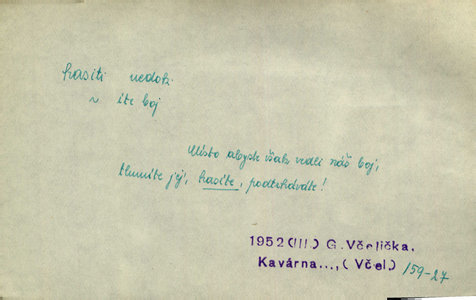 hasiti nedok.
~ íte boj
Místo abyste však vedli náš boj,
tlumíte jej, hasíte, podtrháváte!
1952(III.) G.Včelička,
Kavárna...,(Včel) /59-27